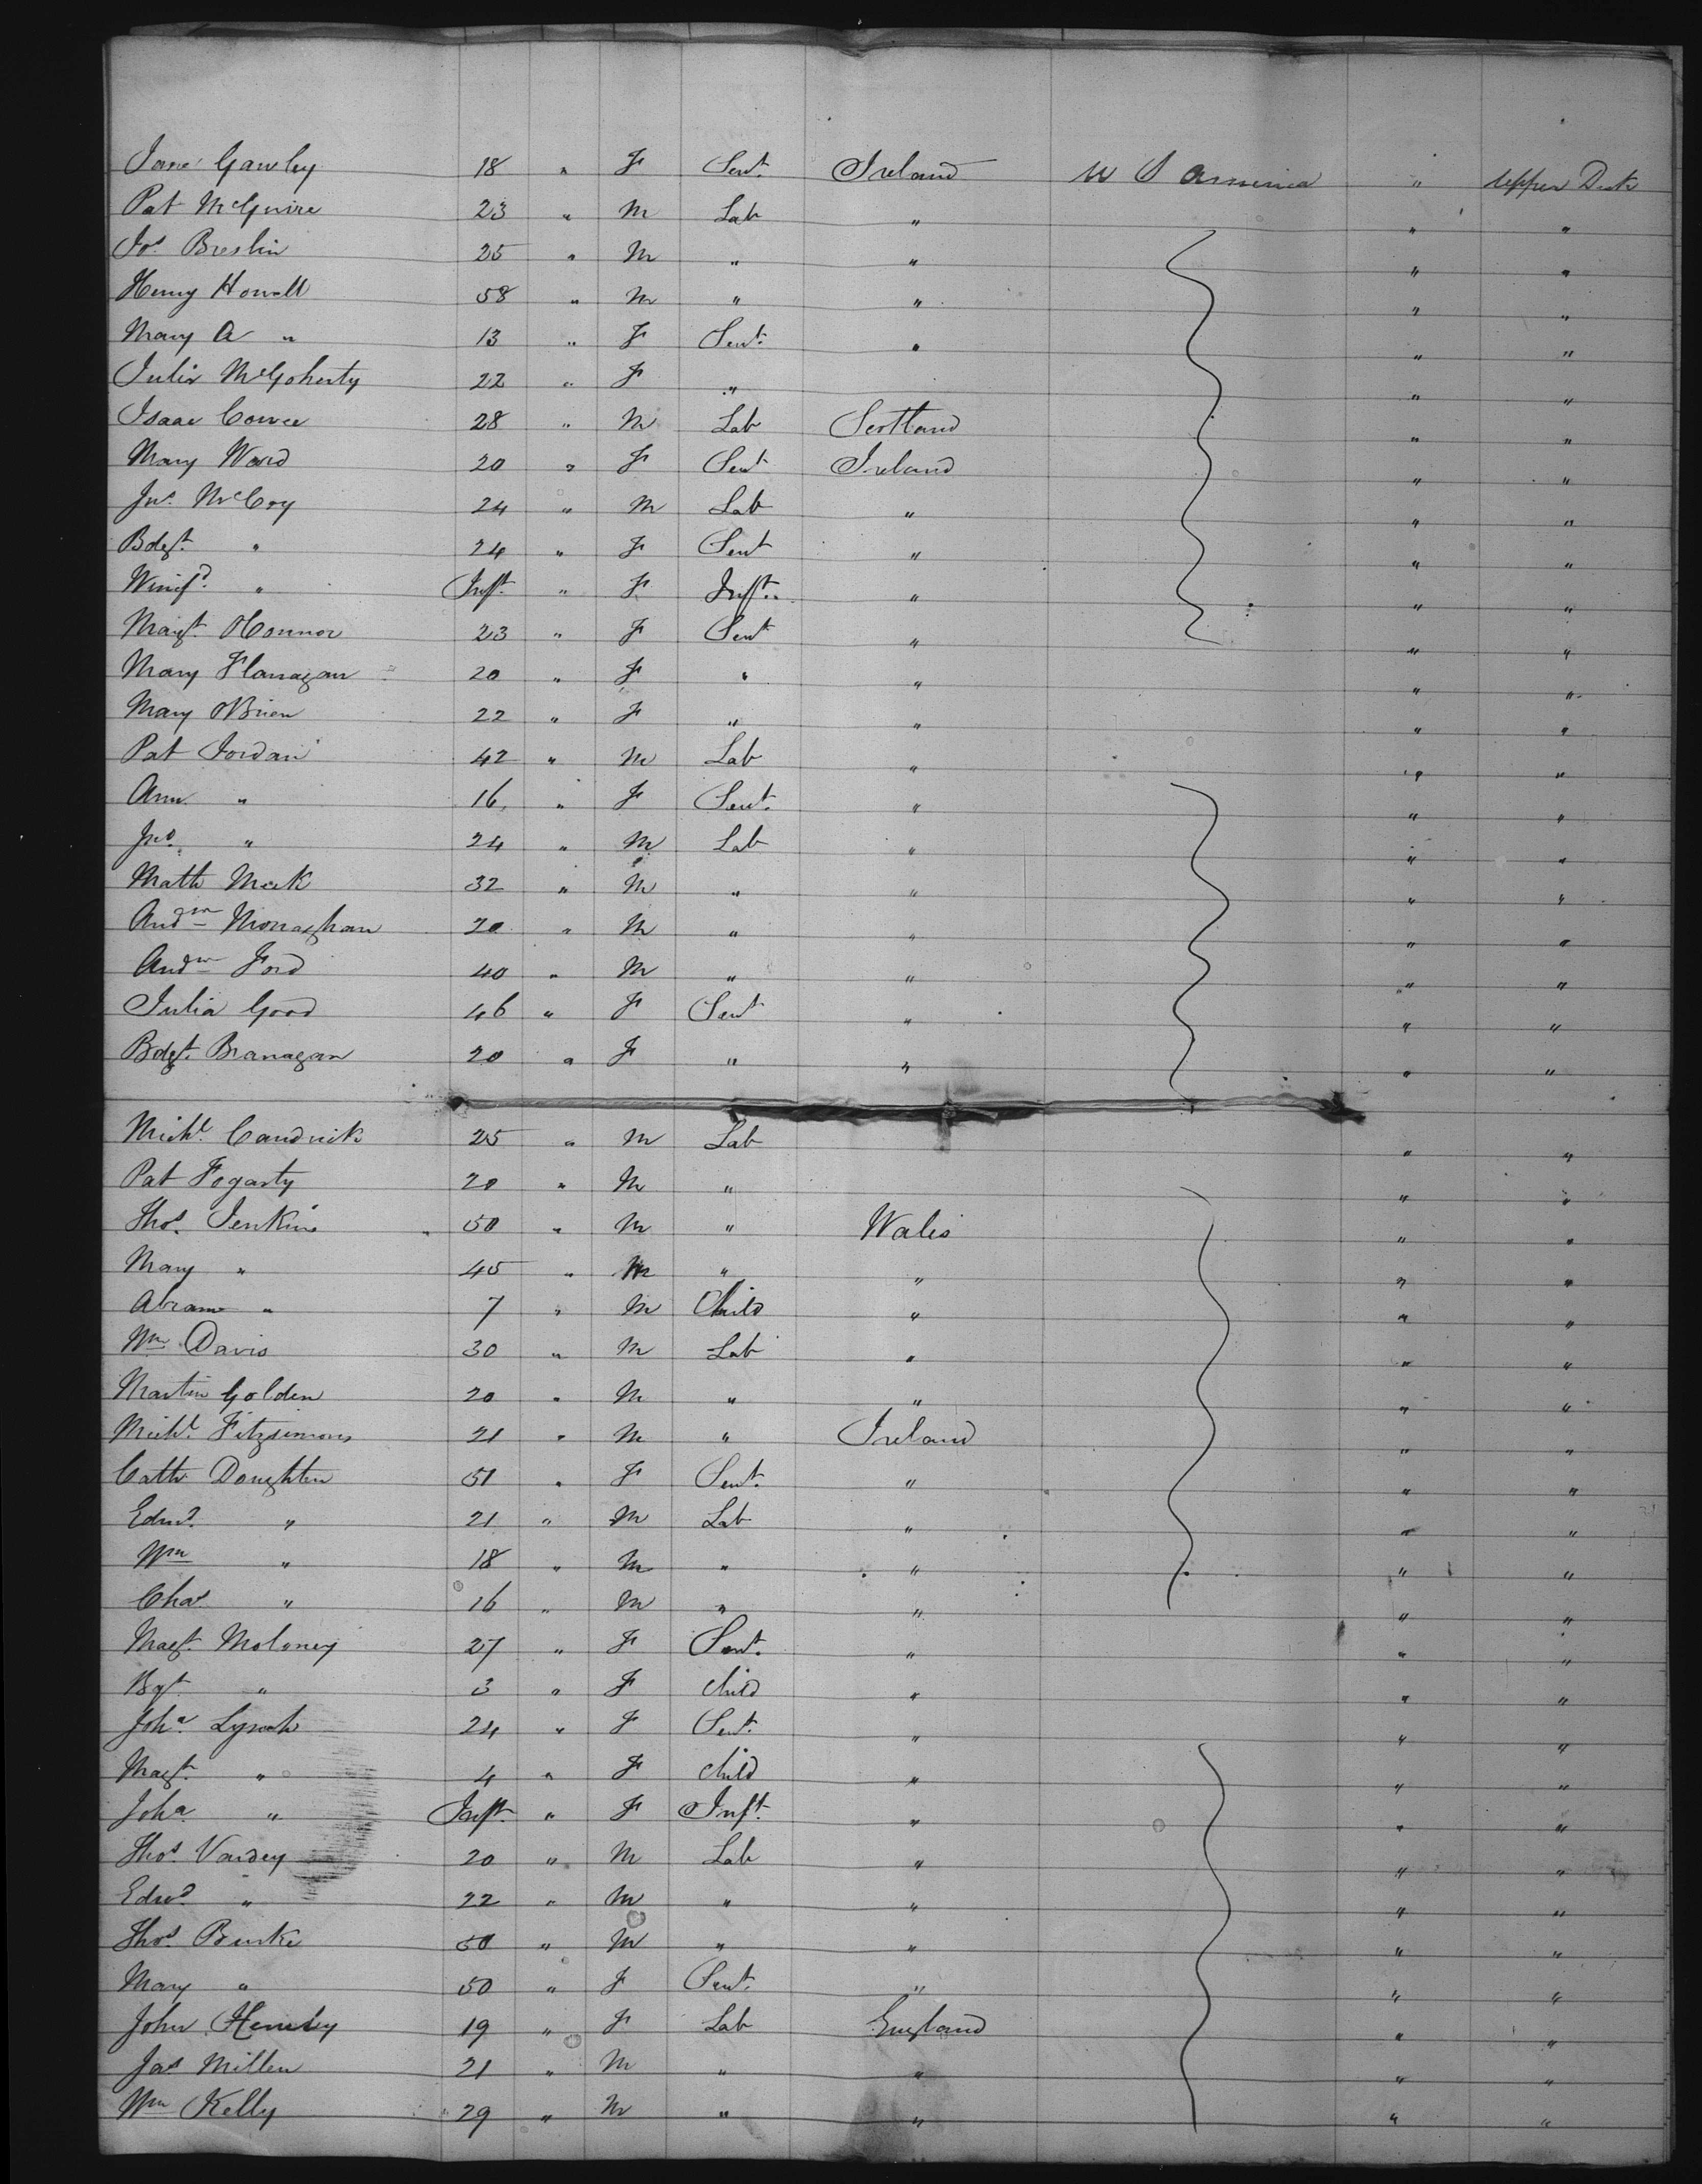 Jane Gawley 18 " F Sert. Ireland U S America " Upper Deck
Pat McGuire 23 " M Lab " " "
Jos. Breslin 25 " M " " " "
Henry Howell 58 " M " " " "
Mary A " 13 " F Sert. " " "
Julia McGoherty 22 " F " " "
Isaac Cowee 28 " M Lab Scotland " "
Mary Ward 20 " F Sert Ireland " "
Jns. McCoy 24 " M Lab " " "
Bdgt. " 24 " F Sert " " "
Winifd. " Inft. " F Inft. " " "
Margt. OConnor 23 " F Sert " " "
Mary Flanagan 20 " F " " " "
Mary OBrien 22 " F " " " "
Pat Jordan 42 " M Lab " " "
Ann " 16 " F Sert. " " "
Jno. " 24 " M Lab " " "
Math Meek 32 " M " " " "
Andw Monaghan 20 " M " " " "
Andw Ford 40 " M " " " "
Julia Good 46 " F Sert " " "
Bdgt. Branagan 20 " F " " " "
Michl. 25 " M Lab " "
Pat Fogarty 20 " M " " "
Thos. Jenkins 50 " M " Wales " "
Mary " 45 " M " " " "
Abram " 7 " M Child " " "
Wm Davis 30 " M Lab " " "
Martin Golden 20 " M " " " "
Michl. Fitzsimons 21 " M " Ireland " "
Cath Doughten 51 " F Sert. " " "
Edwd. " 21 " M Lab " " "
Wm " 18 " M " " " "
Chas " 16 " M " " " "
Magt. Moloney 27 " F Sert. " " "
Bgt " 3 " F Child " " "
Joha. Lynch 24 " F Sert. " " "
Magt. " 4 " F Child " " "
Joha. " Inft. " F Inft. " " "
Thos. Vardey 20 " M Lab " " "
Edwd " 22 " M " " " "
Thos. Burke 50 " M " " " "
Mary " 50 " F Sert. " " "
John Hemsley 19 " F Lab England " "
Jas Millen 21 " M " " " "
Wm Kelly 29 " M " " " "